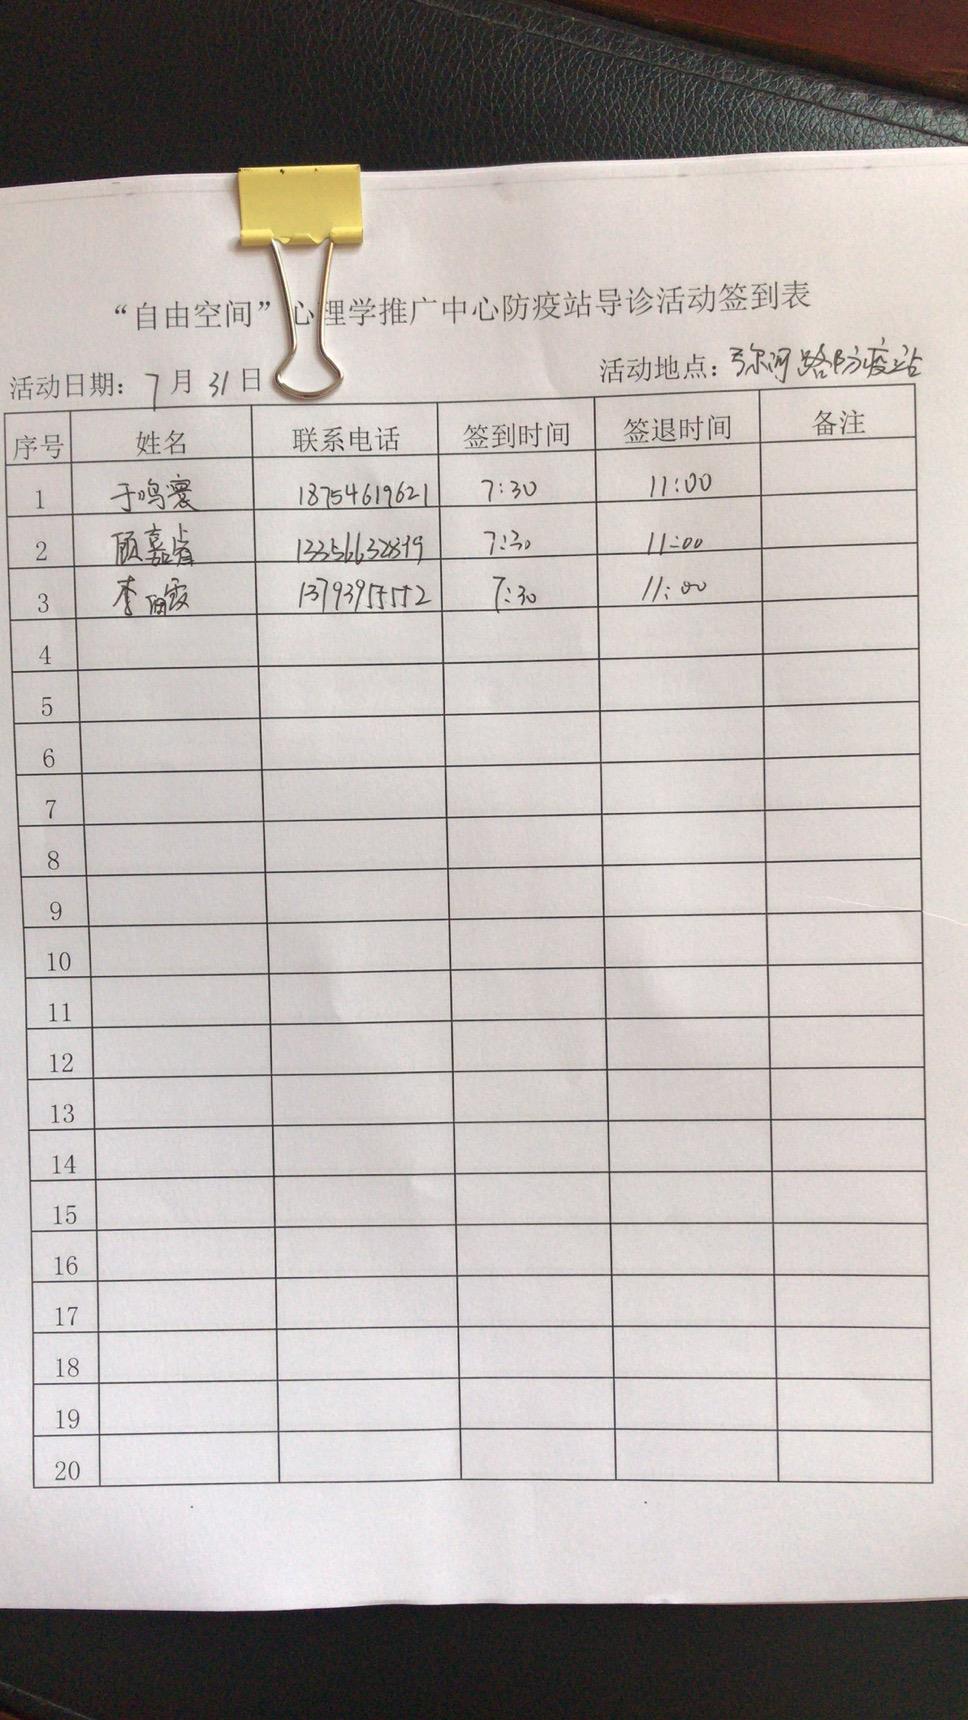 “自由空间”心理学推广中心防疫站导诊活动签到表
活动日期：7月31日 活动地点：弥河路防疫站
序号 姓名 联系电话 签到时间 签退时间 备注
1 于鸣寰 18754619621 7:30 11:00
2 顾嘉 7:30 11:00
3 李 霞 13793955552 7:30 11:00
4
5
6
7
8
9
10
11
12
13
14
15
16
17
18
19
20